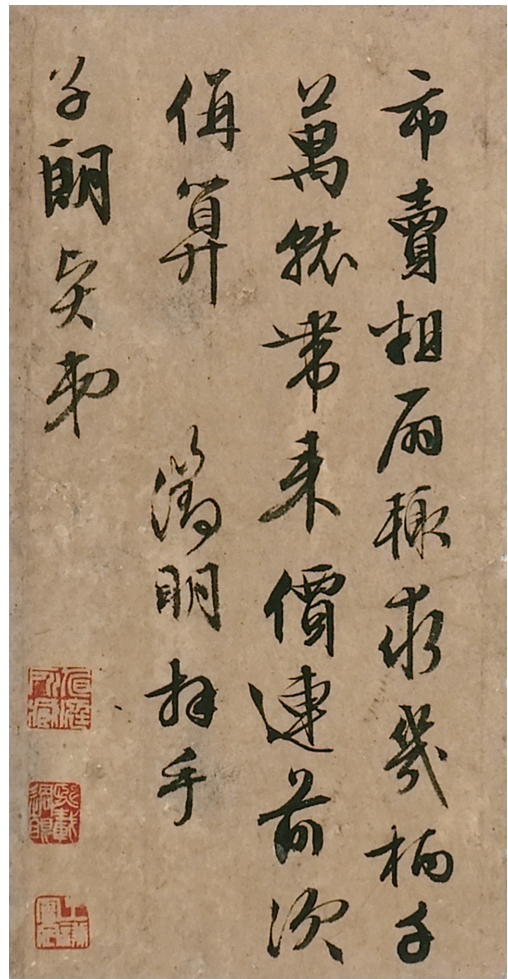 市賣粗扇輙求幾柄千
萬就帶來價連前次
併算　徵明拜手
子朗賢弟